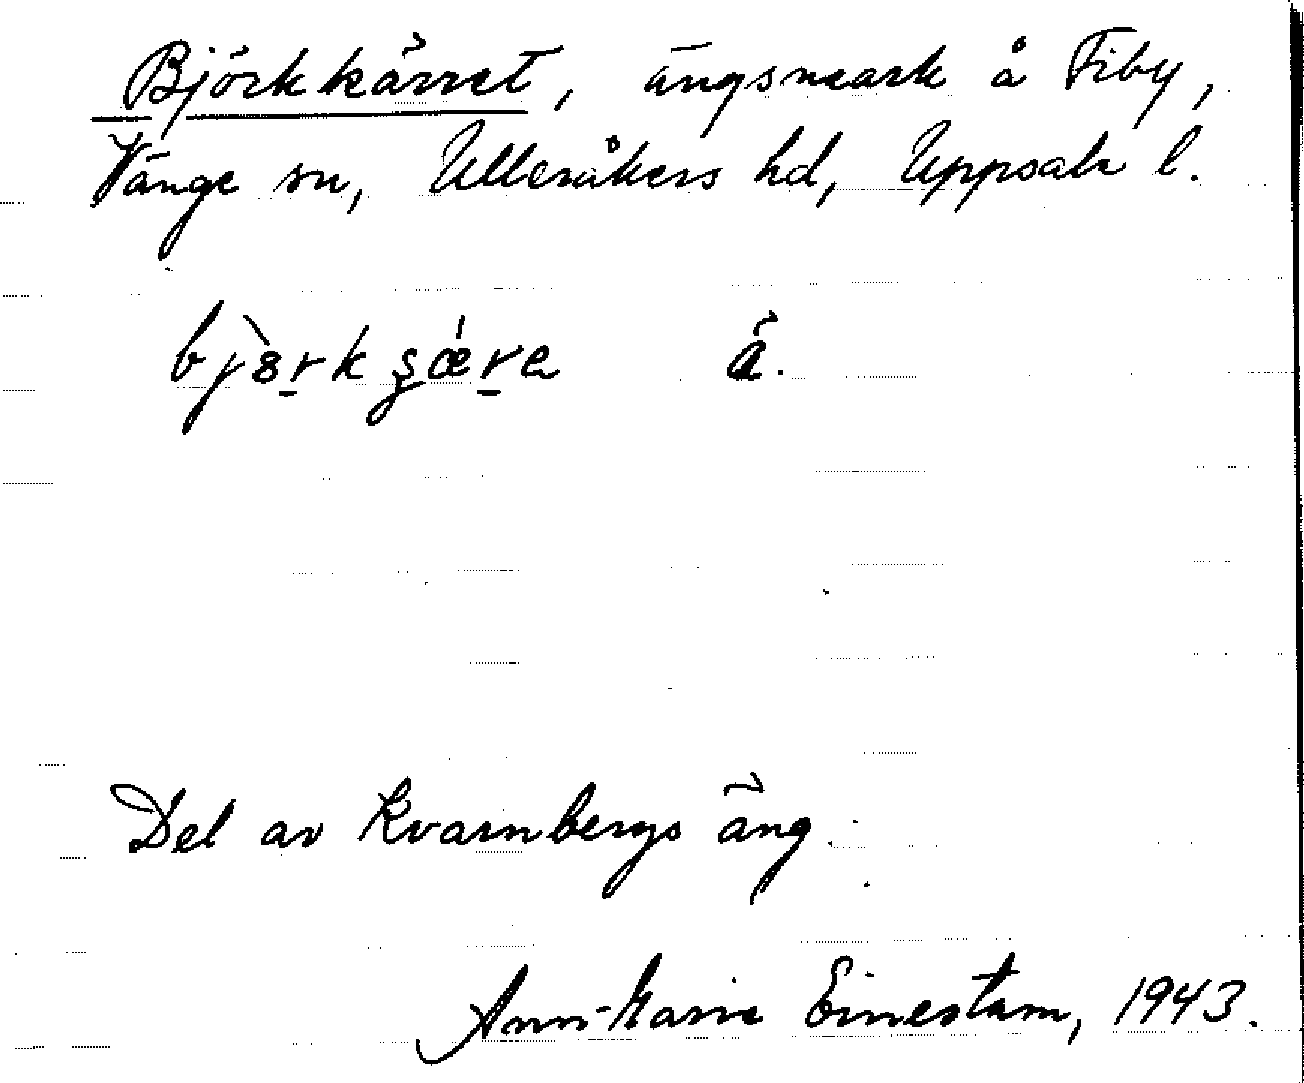 Björkkärret, ängsmark å Fiby,
Vänge sn, Ulleråkers hd, Uppsala l.
å.
Del av Kvarnbergs äng.
Ann-Marie Einestam, 1943.